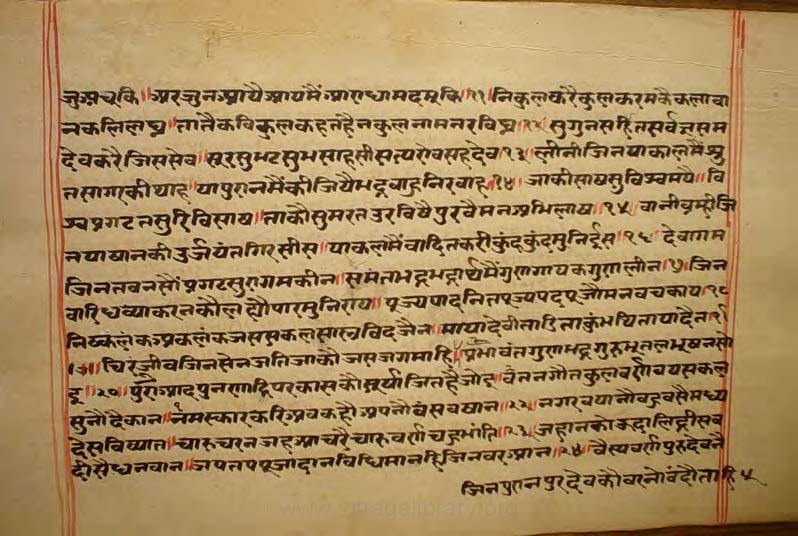 जुग्नचूकि॥ अरजुन आयै आयमैं आराधामदमूकि ११ निकुलकरै कुलकरमकै कलावा
नकलिलघ्र॥ तातैकविकुलकहतहैनकुलनामनरविघ्र १२ सुगुनसहितसर्वज्ञसम
देवकरैजिससेव॥ सूरसुभटसुभसाहसीसत्यरोवसहदेव १३ लीनीजिनयाकालमैंश्रु
तसागरकीथाह॥ यापुरानमैंकीजियैभद्रबाहुनिरवाह १४ जाकीसाषसुविश्वमये॥ वि
श्वप्रगटतसुरिविसाष॥ ताकौसुमरतउरवियैपुरवैमनअभिलाष १५ वानीब्रम्हीजि
नपाषानकीउर्जयंतगिरसीस॥ याकलमैंवादितकरीकुंदकुंदमुनिईस १६ देवागम
जिनतवनसौंप्रगटसुरागमकीन॥ समंतभद्रभद्रार्थमैंगुरागायकगुरालीन १७ जिन
वारिधव्याकरनकौलह्यौपारमुनिराय॥ पूज्यपादनितपूज्यपदपूजौमनवचकाय १८
निष्कलंकअकलंकजससकलसास्त्रविदजैन॥ मायादेवीताडिताकुंभथितायादेन १९
॥ चिरंजीवजिनसेनजतिजाकौजसजगमाहि॥ प्रभावंतगुराभद्रगुरुभूतलभूषनसो
इ २० पुंराआदपुनराद्रिपरकासकौसूर्याजितहैजोइ॥ वंतनगौतकुलवर्राावयसकल
सुनौदेकान॥ नमस्कारकरिअवकहौअपनौवंसवषान २२ नगरवयानौवहुवसैमध्य
देसविष्यात॥ चारुचरनजहआचरैचारुवर्राावहुभांति २३ जहानकोऊदालिद्रीसब
दीसैधनवान॥ जपतपपूजादानविधिमानहिजिनवरआन २४ वैस्यवर्रापुरुदेवनै
जिनपुरानपुरदेवकौवरनोवंदौताहि ५